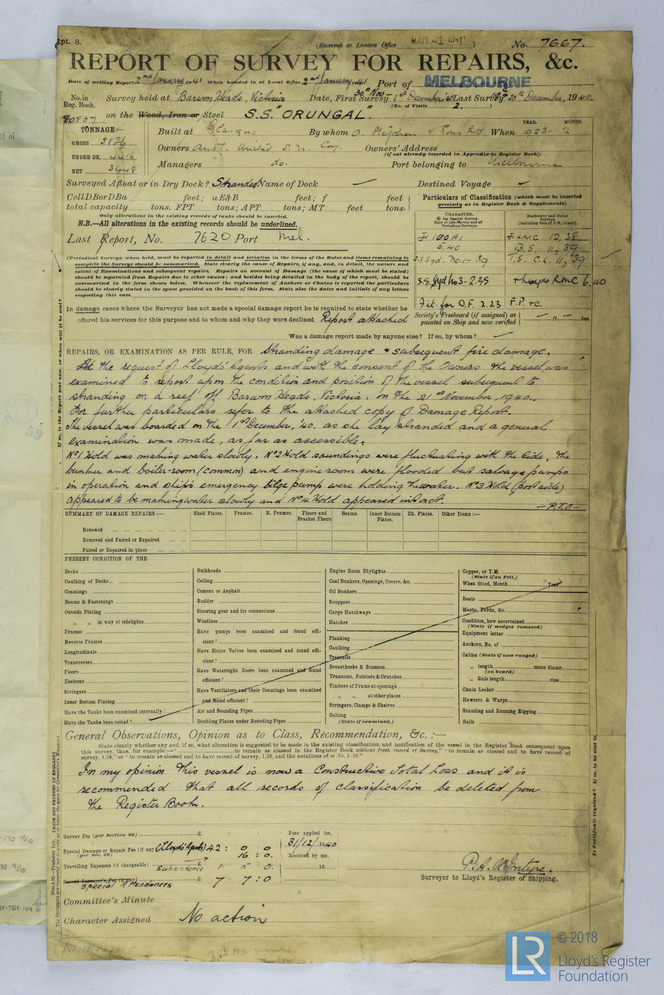 Rpt. 8.
(Received at London Office MAR 21 1941)
No. 7667.
REPORT OF SURVEY FOR REPAIRS, &c.
Date of writing Report 2nd January 41 When handed in at Local Office 2nd January 41 Port of MELBOURNE
No. in Reg. Book. Survey held at Barwon Heads, Victoria Date, First Survey 1st December Last Survey 20th December, 1940
(No. of Visits 2.)
80807 on the Wood, Iron or Steel S.S. "ORUNGAL."
TONNAGE:
GROSS 5826
UNDER DK. 4416
NET 3448
Built at Glasgow By whom A. Stephen & Sons Ltd. When 1923-12
YEAR. MONTH.
Owners Aust. United S.N. Coy. Owners' Address
(if not already recorded in Appendix to Register Book).
Managers do. Port belonging to Melbourne
Surveyed Afloat or in Dry Dock? Stranded Name of Dock — Destined Voyage —
Cell DB or DBa feet; uE&B feet; f feet
total capacity tons. FPT tons; APT tons; MT feet tons.
Only alterations in the existing records of tanks should be inserted.
N.B.—All alterations in the existing records should be underlined.
Last Report, No. 7620 Port Mel.
Particulars of Classification (which must be inserted precisely as in Register Book & Supplements)
+ 100 A1
6.40
S.S. Syd. No. 1-39
S.S. Syd No 3-2.35
Fit for O.F. 2.23 F.P. &c.
+ LMC 12,38
B.S. 11,39
T.S. C.L. 11,39
Society's Freeboard (if assigned) as painted on Ship and now verified
(Periodical Surveys, when held, must be reported in detail and seriatim in the terms of the Rules and items remaining to complete the Surveys should be indicated. State clearly the cause of Repairs, if any, and, in detail, the nature and extent of Examinations and subsequent repairs. Repairs on account of Damage (the cause of which must be stated) should be separated from Repairs due to other causes; and besides being detailed in the body of the report, should be summarized in the form shown below. Whenever the replacement of Anchors or Chains is reported the particulars should be clearly stated in the space provided on the back of this form. State also the dates and initials of any letters respecting this case.
In damage cases where the Surveyor has not made a special damage report he is required to state whether he offered his services for this purpose and to whom and why they were declined Report attached
Was a damage report made by anyone else? If so, by whom? —
REPAIRS, OR EXAMINATION AS PER RULE, FOR Stranding damage & subsequent fire damage.
At the request of Lloyd's Agents and with the consent of the Owners the vessel was
examined to report upon the condition and position of the vessel subsequent to
stranding on a reef off Barwon Heads, Victoria. on the 21st November, 1940.
For further particulars refer to the attached copy of Damage Report.
The vessel was boarded on the 1st December, '40. as she lay stranded and a general
examination was made, as far as accessible:
No 1 Hold was making water slowly. No 2 Hold soundings were fluctuating with the tide. The
bunker and boiler-room (common) and engine room were flooded but salvage pumps
in operation and ship's emergency bilge pump were holding the water. No 3 Hold (port side)
appeared to be making water slowly and No 4 Hold appeared intact.
—P.T.O.—
SUMMARY OF DAMAGE REPAIRS:— Shell Plates. Frames. R. Frames. Floors and Bracket Floors Beams. Inner Bottom Plates. Dk. Plates. Other Items:—
Renewed
Removed and Faired or Repaired
Faired or Repaired in place
PRESENT CONDITION OF THE
Decks
Caulking of Decks
Coamings
Beams & Fastenings
Outside Plating
" " in way of sidelights
Frames
Reverse Frames
Longitudinals
Transverses
Floors
Keelsons
Stringers
Inner Bottom Plating
Have the Tanks been examined internally?
Have the Tanks been tested?
Bulkheads
Ceiling
Cement or Asphalt
Rudder
Steering gear and its connections
Windlass
Have pumps been examined and found efficient?
Have Sluice Valves been examined and found efficient?
Have Watertight Doors been examined and found efficient?
Have Ventilators and their Coamings been examined and found efficient?
Air and Sounding Pipes
Doubling Plates under Sounding Pipes
Engine Room Skylights
Coal Bunkers, Openings, Covers, &c.
Oil Bunkers
Scuppers
Cargo Hatchways
Hatches
Planking
Caulking
Treenails
Breasthooks & Stemson
Transoms, Pointers & Crutches
Timbers of Frame at openings
" " at other places
Stringers, Clamps & Shelves
Salting
(State if examined.)
Copper, or Y.M.
(State if on Felt.)
When fitted, Month Year
Boats
Masts, Yards, &c.
Condition, how ascertained
(State if wedges removed)
Equipment letter
Anchors, No. of
Cables (State if now ranged)
" length mean diamr.
(on board)
" Rule length size
Chain Locker
Hawsers & Warps
Standing and Running Rigging
Sails
General Observations, Opinion as to Class, Recommendation, &c.:—
In my opinion this vessel is now a Constructive Total Loss and it is
recommended that all records of classification be deleted from
the Register Book.
Survey Fee (per Section 29) £
Special Damage or Repair Fee (if any) (Lloyd's Agents) 42 : 0 : 0
16 : 0
Travelling Expenses (if chargeable) Subsistence
Special Attendances £ 7 7 : 0
Fees applied for, 31/12/1940
Received by me,
19
P. A. McIntyre.
Surveyor to Lloyd's Register of Shipping.
Committee's Minute
Character Assigned No action
LR
© 2018
Lloyd's Register
Foundation